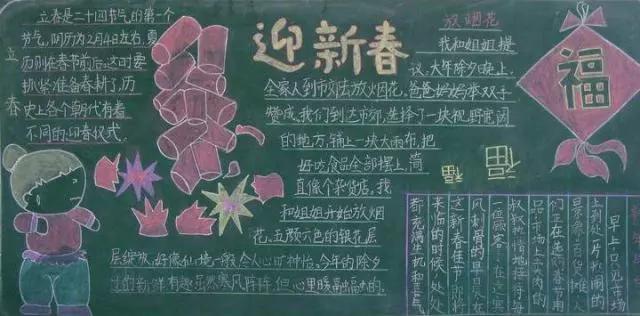 立春
立春是二十四节气的第一个
节气,阴历为2月4日左右,夏
历则在春节前后。这时要
抓紧准备春耕了,历
史上各个朝代有着
不同的迎春仪式.
迎新春
放烟花
我和姐姐提
议,大年除夕晚上,
全家人到市郊去放烟花,爸爸妈妈举双手
赞成,我们到达市郊,选择了一块视野宽阔
的地方,铺上一块大雨布,把
好吃食品全部摆上,简
直像个杂货店,我
和姐姐开始放烟
花,五颜六色的银花层
层绽放,好像仙境一般,令人心旷神怡,今年的除夕
过的新鲜有趣,虽然寒风阵阵,但心里暖融融的.
福
福
福
早上只见市场
上到处一片热闹的
们正在
品,市场上卖肉的
叔叔热情地招待每
一位顾客。在这寒
风刺骨的早晨,在
这新春佳节即将
来临的时候,处处
都充满生机和喜气